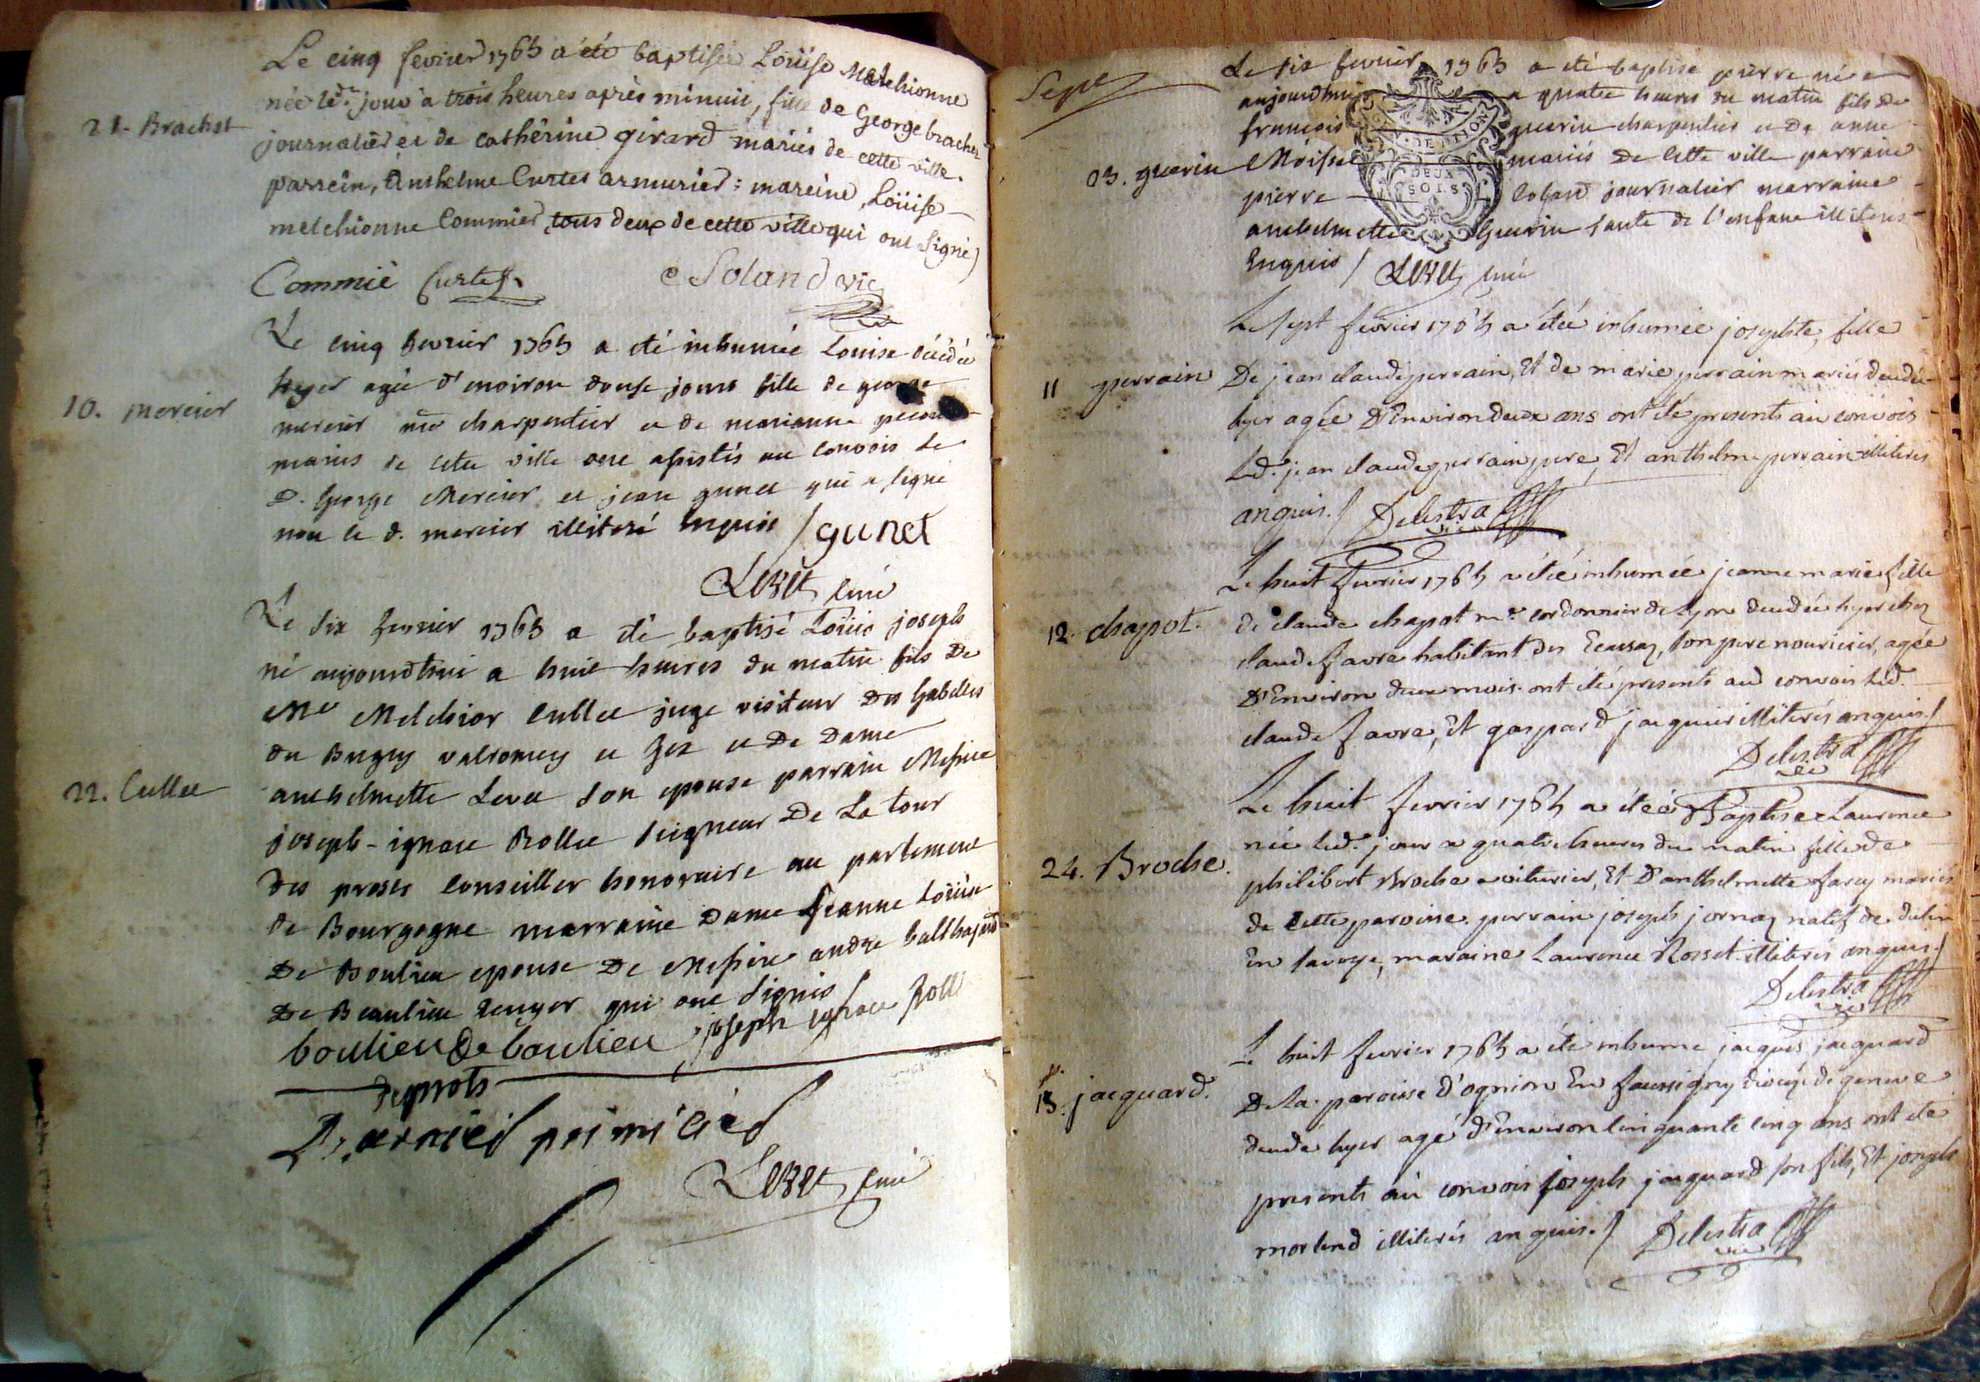 Le cinq fevrier 1765 a été baptisée Loüise Melchionne
née led. jour a trois heures après minuit, fille de George brachet
21. Brachet
journalier et de cathérine girard mariés de cette ville.
parrein, Anthelme Curtet armurier: mareine, Loüise
melchionne Commier tous deux de cette ville qui ont signé
Commié Curtet Soland vic
Le cinq fevrier 1765 a été inhumée Louise décédée
hyer agée d'environ douse jours fille de george
10. mercier
mercier me charpentier et de marianne
mariés de cette ville ont assistés au convois le
D. George Mercier et jean gunet qui a signé
non le d. mercier illiteré enquis / gunet
Levet curé
Le six fevrier 1765 a été baptisé Loüis joseph
né aujourdhui a huit heures du matin fils de
Mre Melchior Cullet juge visiteur des Gabelles
du Bugey valromey et Gex et de Dame
22. Cullet
anthelmette Levet son epouse parrain Messire
joseph-ignace Rollet seigneur De La tour
des pro conseiller honoraire au parlement
de Bourgogne marraine Dame jeanne Loüise
De Boulieu epouse De Messire andre balthazard
De Beaulieu qui ont signés
boulieu De boulieu joseph ignace Roll
Levet curé
Sept
Le six fevrier 1765 a été baptisé pierre né
aujourdhui a quatre heures du matin fils de
françois guerin charpentier et de anne
23. guerin
mariés de cette ville parrain
pierre journalier marraine
anthelmette Guerin tante de l'enfant illiterés
Enquis / Levet curé
Le sept fevrier 1765 a étée inhumée josephte, fille
11 perrain
De jean claude perrain, Et de marie perrain mariés decedée
hyer agée D'Environ deux ans ont été presents au convois
Led. jean claude perrain pere, Et anthelme perrain illiterés
anquis. / Delestra vic
Le huit fevrier 1765 a étée inhumée jeanne marie fille
12. chapot.
de claude chapot me cordonnier de Lyon decedée hyer chez
claude favre habitant des Ecassaz, son pere nouricier, agée
D'Environ deux mois. ont été presents au convois Led.
claude favre, Et gaspard jacquier illiterés anquis. /
Delestra vic
Le huit fevrier 1765 a étée Baptisée Laurence
née Led. jour a quatre heures du matin fille de
24. Broche.
philibert Broche voiturier, Et D'anthelmette farcy mariés
de cette paroisse. parrain joseph jornaz natif de
En savoye, maraine Laurence Rosset illiterés anquis. /
Delestra vic
Le huit fevrier 1765 a été inhumé jacques jacquard
13. jacquard.
De la paroisse d'ognion En faussigny diocese de geneve
decedé hyer agé d'Environ cinquante cinq ans ont été
presents au convois joseph jacquard son fils, Et joseph
morland illiterés anquis. / Delestra vic